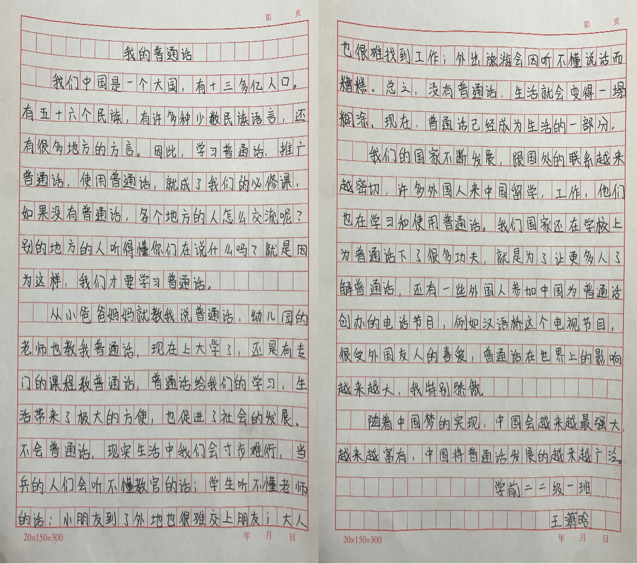 第 页
我的普通话
我们中国是一个大国，有十三多亿人口。
有五十六个民族，有许多种少数民族语言，还
有很多地方的方言。因此，学习普通话，推广
普通话，使用普通话，就成了我们的必修课。
如果没有普通话，各个地方的人怎么交流呢？
别的地方的人听得懂你们在说什么吗？就是因
为这样，我们才要学习普通话。
从小爸爸妈妈就教我说普通话，幼儿园的
老师也教我普通话，现在上大学了，还是有专
门的课程教普通话，普通话给我们的学习、生
活带来了极大的方便，也促进了社会的发展。
不会普通话，现实生活中我们会寸步难行，当
兵的人们会听不懂教官的话；学生听不懂老师
的话；小朋友到了外地也很难交上朋友；大人
20×150=300 年 月 日
第 页
也很难找到工作；外出旅游会因听不懂说话而
糟糕。总之，没有普通话，生活就会变得一塌
糊涂。现在，普通话已经成为生活的一部分。
我们的国家不断发展，跟国外的联系越来
越密切，许多外国人来中国留学，工作，他们
也在学习和使用普通话。我们国家还在学校上
为普通话下了很多功夫，就是为了让更多人了
解普通话，还有一些外国人参加中国为普通话
创办的电话节目，例如汉语桥这个电视节目，
很受外国友人的喜爱，普通话在世界上的影响
越来越大，我特别骄傲。
随着中国梦的实现，中国会越来越最强大，
越来越富有，中国将普通话发展的越来越广泛。
学前二二级一班
王
20×150=300 年 月 日